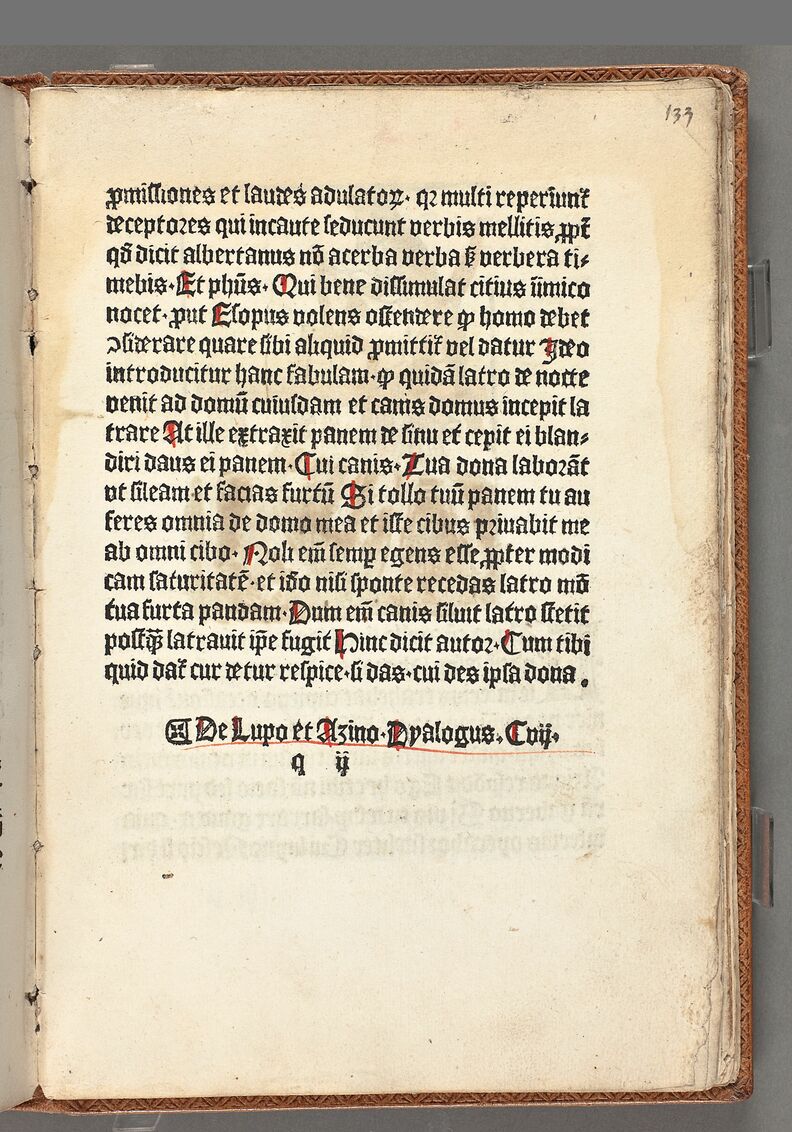 133
ꝓmissiones et laudes adulatoꝝ· qꝛ multi reperiunt̃
deceptores qui incaute seducunt verbis mellitis ꝓpt̃
qd̃ dicit albertanus nõ acerba verba sʒ verbera ti⸗
mebis·Et phũs·Qui bene dissimulat citius inimico
nocet·ꝓut Esopus volens ostendere ꝙ homo debet
ꝯsiderare quare sibi aliquid ꝓmittit̃ vel datur Ideo
introducitur hanc fabulam·ꝙ quidã latro de nocte
venit ad domũ cuiusdam et canis domus incepit la
trare At ille extraxit panem de sinu et cepit ei blan⸗
diri daus ei panem·Cui canis·Tua dona laborãt
vt sileam et facias furtũ Si tollo tuũ panem tu au
feres omnia de domo mea et iste cibus priuabit me
ab omni cibo·Noli em̃ semꝑ egens esse ꝓpter modi
cam saturitatẽ·et iđo nisi sponte recedas latro mõ
tua furta pandam·Dum em̃ canis siluit latro stetit
postꝙ̃ latrauit ip̃e fugit Hinc dicit autor·Cum tibi
quid dat̃ cur detur respice·si das·cui des ipsa dona.
De Lupo et Azino·Dyalogus·Cvij·
q ij